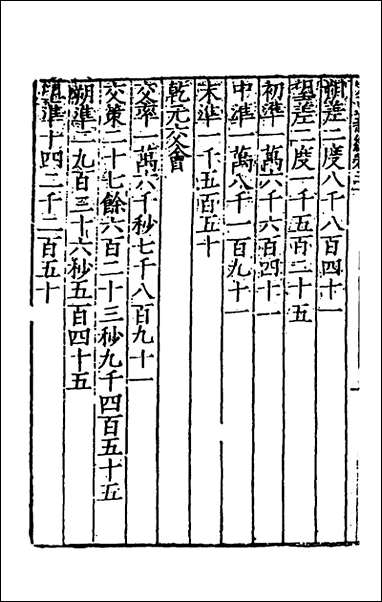 朔差二度八千八百四十一
望差二度一千五百二十五
初準一萬六千六百四十一
中準一萬八千一百九十一
末準一千五百五十
乾元交會
交率一萬六千秒七千八百九十一
交策二十七餘六百二十三秒九千四百五十五
朔準二九百三十六秒五百四十五
望準十四二千二百五十